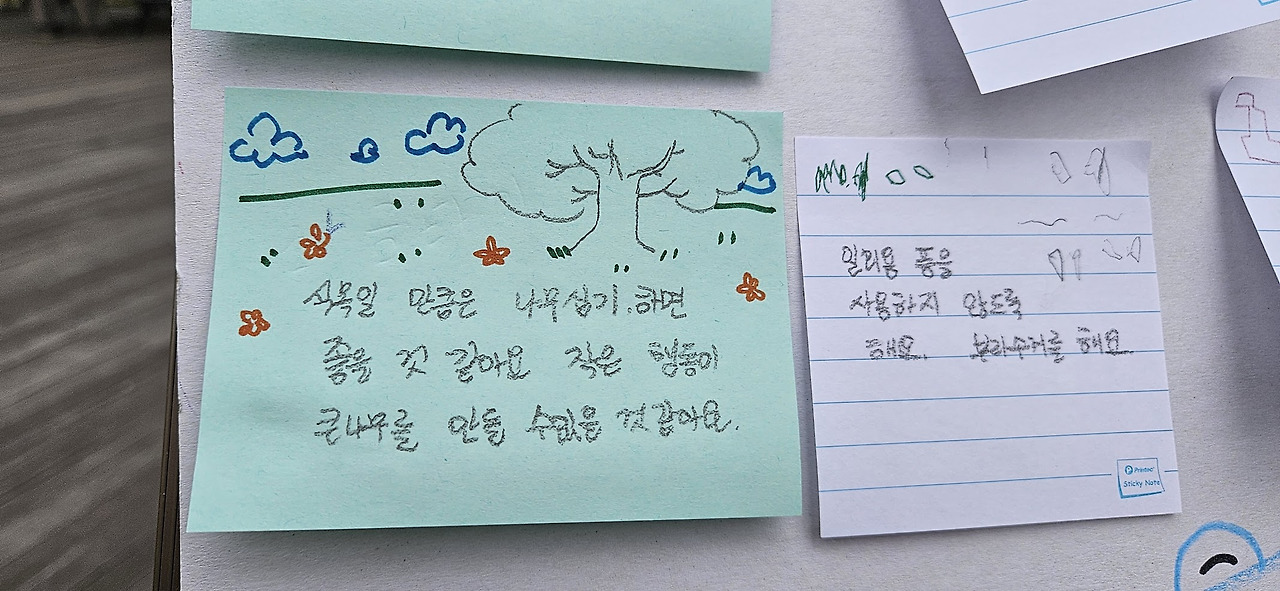 식목일 만큼은 나무심기.하면
좋을 것 같아요 작은 행동이
큰나무를 만들 수있을 것같아요.
일회용 품을
사용하지 않도록
해요. 분리수거를 해요
Printec
Sticky Note